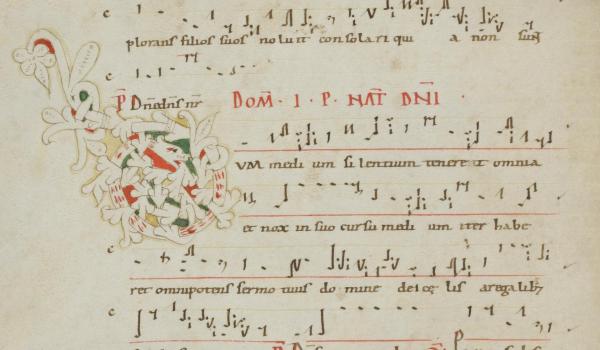 plorans filios suos noluit consolari qui a non sun̄t
P̄ Dn̄edn̄s nr̄ DOM̄ · I · P · NAT̄ DN̄I
VM medi um si lentium tenere t omnia
et nox in suo cursu medi um iter habe
ret omnipotens sermo tuus do mine de i cę lis aregalib;